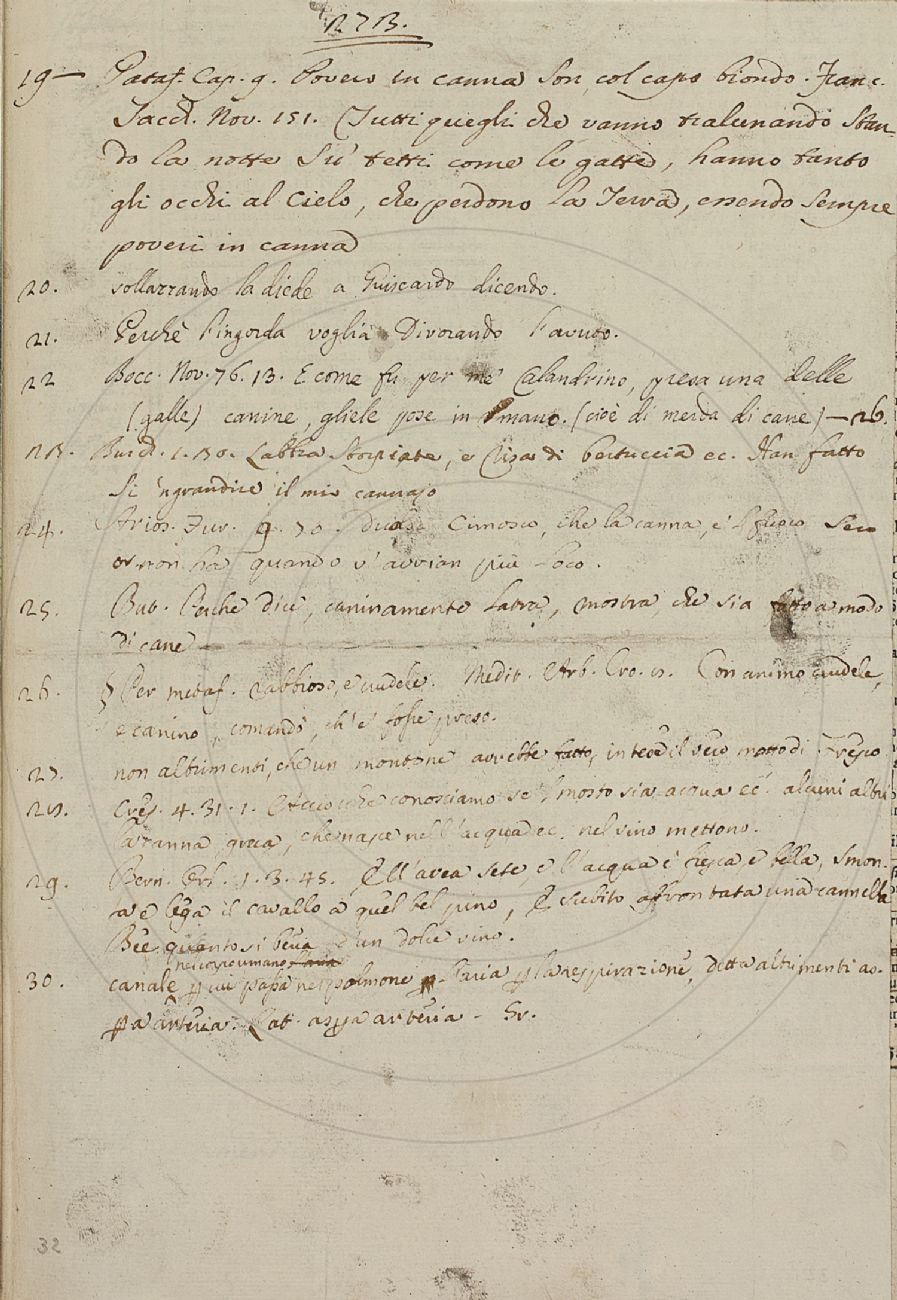 273.
19— Pataf. Cap. 9. Povero in canna son, col capo biondo. Franc.
Sacch. Nov. 151. Tutti quegli che vanno tralunando stan-
do la notte su' tetti come le gatte, hanno tanto
gli occhi al Cielo, che perdono la Terra, essendo sempre
poveri in canna
20. sollazzando la diede a Guiscardo dicendo.
21. Perchè l'ingorda voglia Divorando l'avuto.
22 Bocc. Nov. 76. 13. E come fu per me' Calandrino, presa una delle
(galle) canine, gliele pose in mano. (cioè di merda di cane) — 26.
23. Burch. 1. 130. Labbra storpiate, e Ciga di bertuccia ec. Han fatto
Si 'ngrandire il mio cannajo
24. Arios. Fur. 9. 70. Cimosco, che la canna, e 'l fuoco seco
or non ha quando v'avvian più loco.
25. But. Perchè dice, caninamente latra, mostra che sia fatto a modo
di cane —
26. § Per metaf. Rabbioso, e crudele. Medit. Arb. Cro. 13. Con animo crudele,
e canino, comandò, ch'e' fosse preso.
27. non altrimenti, che un montone avrebbe fatto, intese il vero motto di
28. Cresc. 4. 31. 1. Acciocchè conosciamo se 'l mosto sia acqua ec. alcuni altri
la canna greca, che nasce nell'acqua ec. nel vino mettono.
29. Bern. Orl. 1. 3. 45. Ell'avea sete, e l'acqua è fresca e bella, Smon-
ta e lega il cavallo a quel bel pino, E subito affrontata una cannella
Bee quanto si beva d'un dolce vino.
nel corpo umano l'aria
30. canale ꝑ cui passa nel polmone l'aria ꝑ la respirazione, detta altrimenti as-
ꝑa arteria. Lat. asꝑa arteria. Gr.
32